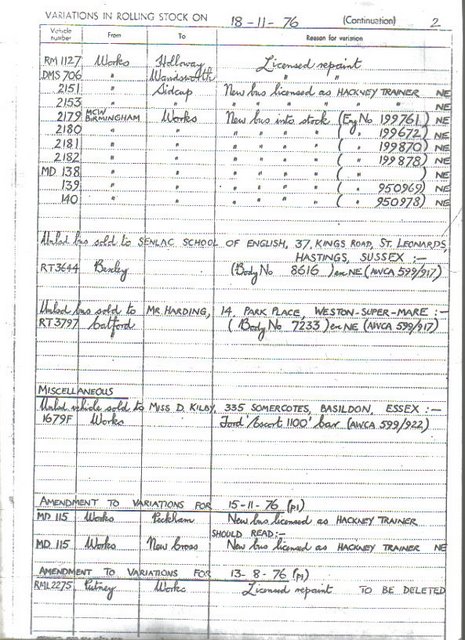 VARIATIONS IN ROLLING STOCK ON 18-11-76 (Continuation) 2
Vehicle number From To Reason for variation
RM 1127 Works Holloway Licensed repaint
DMS 706 " Wandsworth " "
2151 " Sidcup New bus licensed as HACKNEY TRAINER NE
2153 " " " " " " " " NE
2179 MCW BIRMINGHAM Works New bus into stock (Eng No 199761) NE
2180 " " " " " " ( " 199672) NE
2181 " " " " " " ( " 199870) NE
2182 " " " " " " ( " 199878) NE
MD 138 " " " " " " ( " ) NE
139 " " " " " " ( " 950969) NE
140 " " " " " " ( " 950978) NE
Unlsd bus sold to SENLAC SCHOOL OF ENGLISH, 37, KINGS ROAD, ST. LEONARDS,
HASTINGS, SUSSEX :-
RT3644 Bexley (Body No 8616) ex NE (AWCA 599/917)
Unlsd bus sold to MR. HARDING, 14, PARK PLACE, WESTON-SUPER-MARE :-
RT3797 Catford (Body No 7233) ex NE (AWCA 599/917)
MISCELLANEOUS
Unlsd vehicle sold to MISS D. KILBY, 335 SOMERCOTES, BASILDON, ESSEX :-
1679F Works Ford 'Escort 1100' car (AWCA 599/922)
AMENDMENT TO VARIATIONS FOR 15-11-76 (p1)
MD 115 Works Peckham New bus licensed as HACKNEY TRAINER
SHOULD READ:-
MD 115 Works New Cross New bus licensed as HACKNEY TRAINER NE
AMENDMENT TO VARIATIONS FOR 13-8-76 (p1)
RML2275 Putney Works Licensed repaint TO BE DELETED